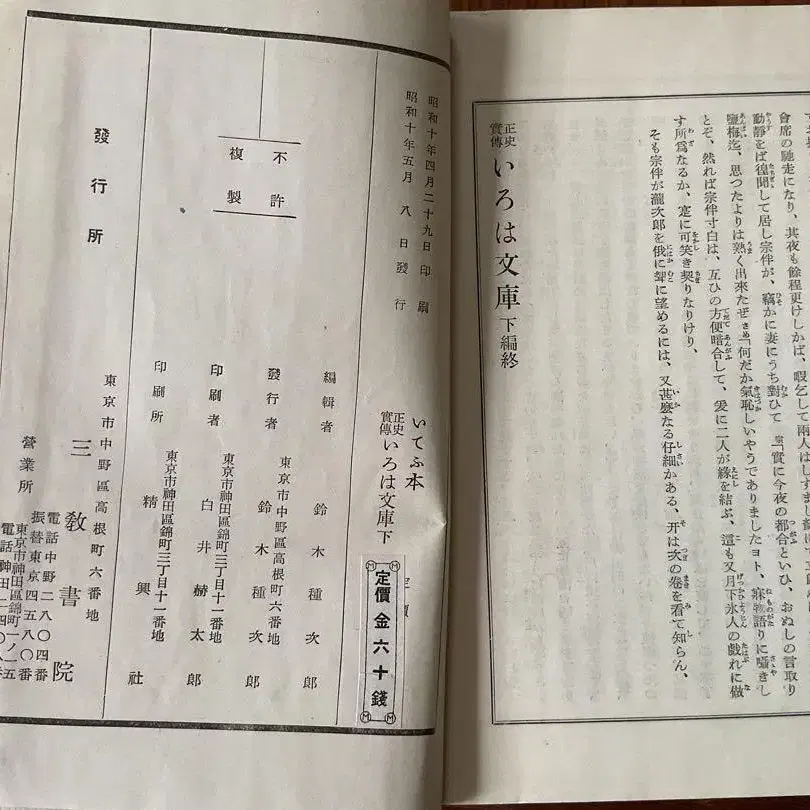 會席の馳走になり、其夜も餘程更けしかば、暇乞して兩人は
動靜をば徨聞して居し宗伴が、竊かに妻にうち對ひて 宗「實に今夜の都合といひ、おぬしの言取り
鹽梅迄、思つたよりは熟く出來たぜ さめ「何だか氣恥しいやうでありましたヨト、寐物語りに囁きし
とぞ、然れば宗伴寸白は、互ひの方便暗合して、爰に二人が緣を結ぶ、這も又月下氷人の戲れに做
す所爲なるか、寔に可笑き契りなりけり、
そも宗伴が瀧次郎を俄に聟に望めるには、又甚麼なる仔細かある、开は次の卷を看て知らん、
正史實傳 いろは文庫 下編終
いてふ本
正史實傳 いろは文庫 下
定價
定價 金六十錢
昭和十年四月二十九日印刷
昭和十年五月 八日發行
編輯者 鈴木種次郎
東京市中野區高根町六番地
發行者 鈴木種次郎
東京市神田區錦町三丁目十一番地
印刷者 白井赫太郎
東京市神田區錦町三丁目十一番地
印刷所 精興社
不許
複製
發行所
東京市中野區高根町六番地
三敎書院
電話中野二八〇四番
振替東京四五八〇番
營業所
東京市神田區錦町一ノ一五
電話神田一四〇